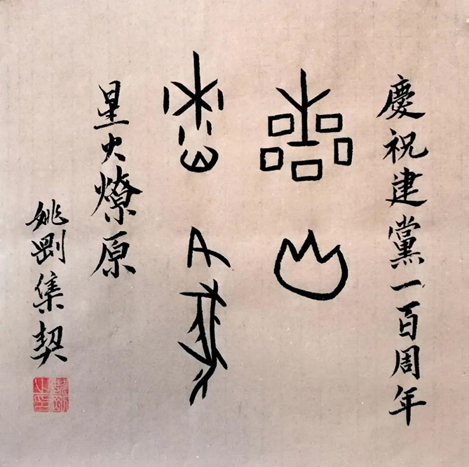 慶祝建黨一百周年
星火
燎原
星火燎原
姚剛集契